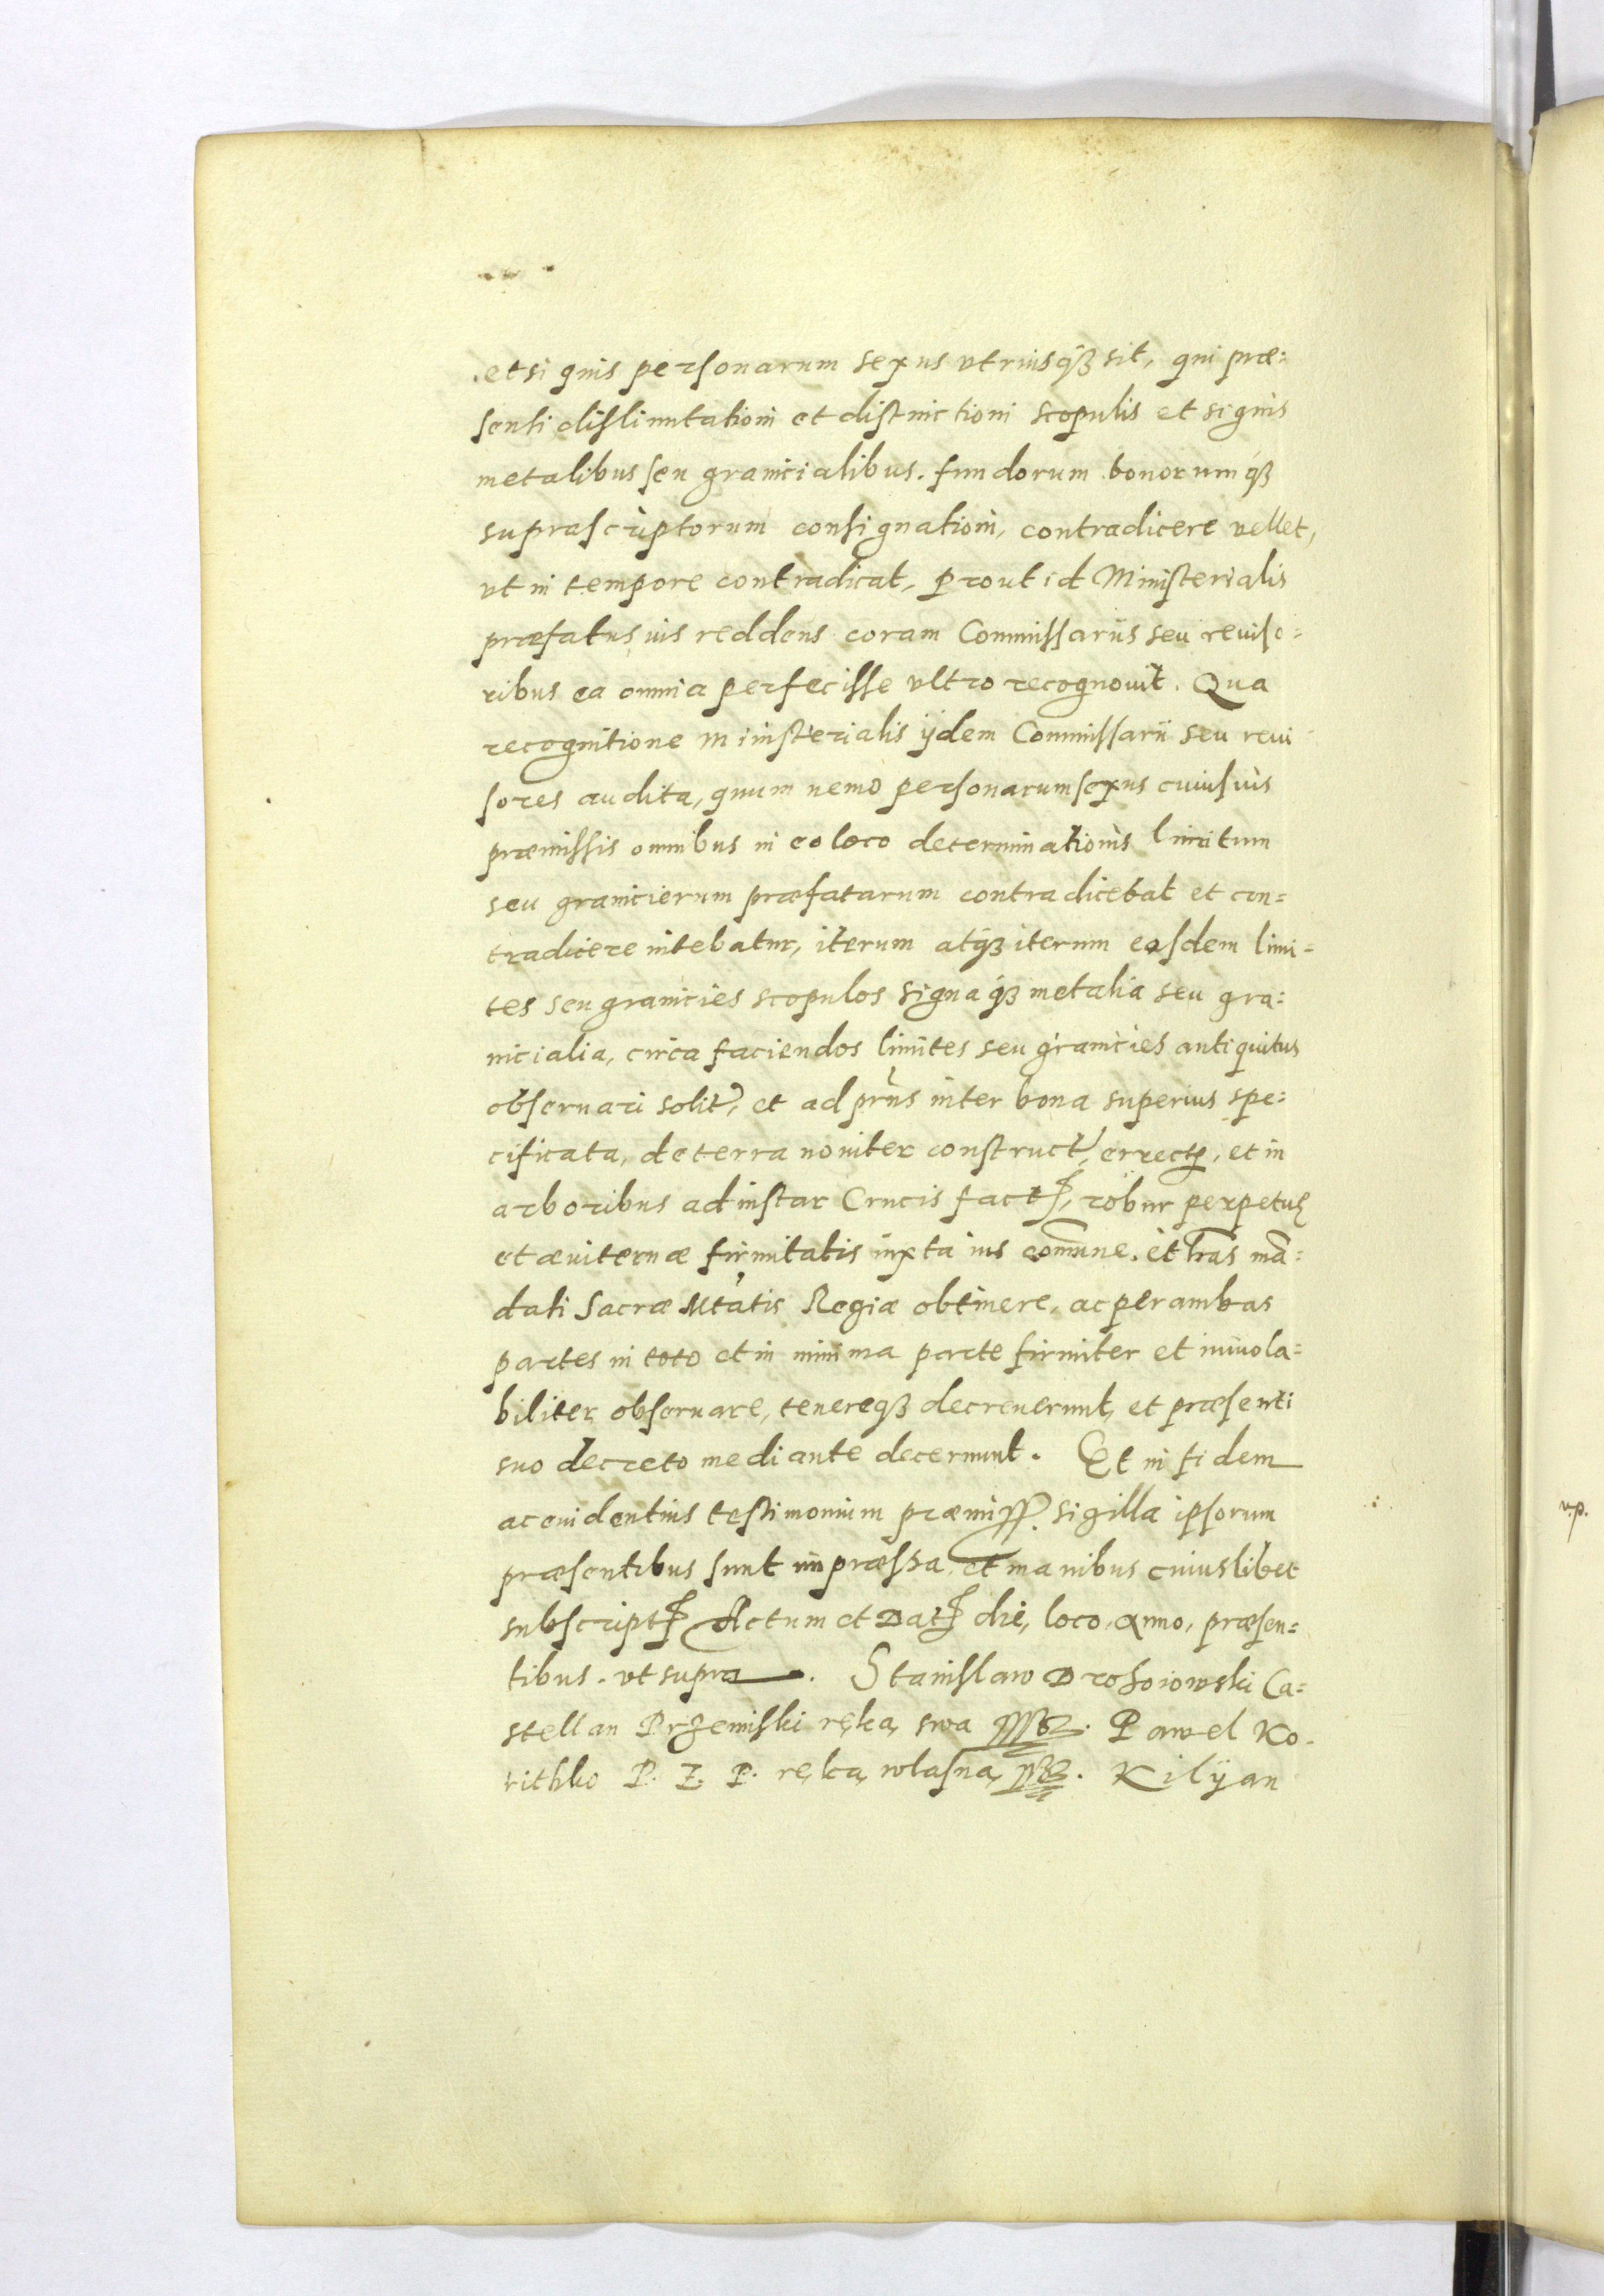 et si quis personarum sexus vtriusqȝ sit, qui præ:
senti dislimitationi et distinctioni scopulis et signis
metalibus seu granicialibus. fundorum bonorumqȝ
suprascriptorum consignationi, contradicere vellet,
vt in tempore contradicat, prout id Ministerialis
præfatus ius reddens coram Commissariis seu reuiso:
ribus ea omnia perfecisse vltro recognouit. Qua
recognitione ministerialis ijdem Commissarii seu reui
sores audita, quum nemo personarum sexus cuiusuis
præmissis omnibus in eo loco determinationis limitum
seu granicierum præfatarum contradicebat et con=
tradicere nitebatur, iterum atqȝ iterum eosdem limi=
tes seu granicies scopulos signaqȝ metalia seu gra:
nicialia, circa faciendos limites seu granicies antiquitus
obseruari solit, et ad prns inter bona superius spe:
cificata, de terra nouiter construct, errect, et in
arboribus ad instar Crucis fact, robur perpetuę
et æuiternæ firmitatis iuxta ius comune. et lras mã:
dati Sacræ Mtatis Regiæ obtinere, ac per ambas
partes in toto et in minima parte firmiter et inuiola=
biliter obseruare, tenereqȝ decreuerunt, et præsenti
suo decreto mediante decernunt. Et in fidem
ac euidentius testimonium præmiss. sigilla ipsorum
præsentibus sunt impræssa et manibus cuiuslibet
subscript Actum et Dat die, loco, anno, præsen=
tibus. vt supra. Stanislaw Drohoiowski Ca=
stellan Przemiski ręką swą. Pawel Ko-
rithko P. Z. P. ręką własną. Kilÿan
v.p.